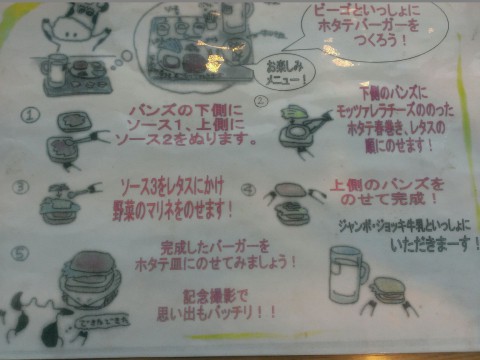 ビーゴといっしょに
ホタテバーガーを
つくろう！
お楽しみ
メニュー！
①
バンズの下側に
ソース1、上側に
ソース2をぬります。
②
下側のバンズに
モッツァレラチーズののった
ホタテ春巻き、レタスの
順にのせます！
③
ソース3をレタスにかけ
野菜のマリネをのせます！
④
上側のバンズを
のせて完成！
ジャンボ・ジョッキ牛乳といっしょに
いただきまーす！
⑤
完成したバーガーを
ホタテ皿にのせてみましょう！
記念撮影で
思い出もバッチリ！！